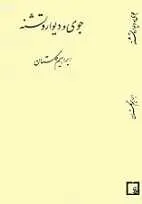 جوی و دیوار و تشنه
ابراهیم گلستان
جوی و دیوار و تشنه
ابراهیم گلستان